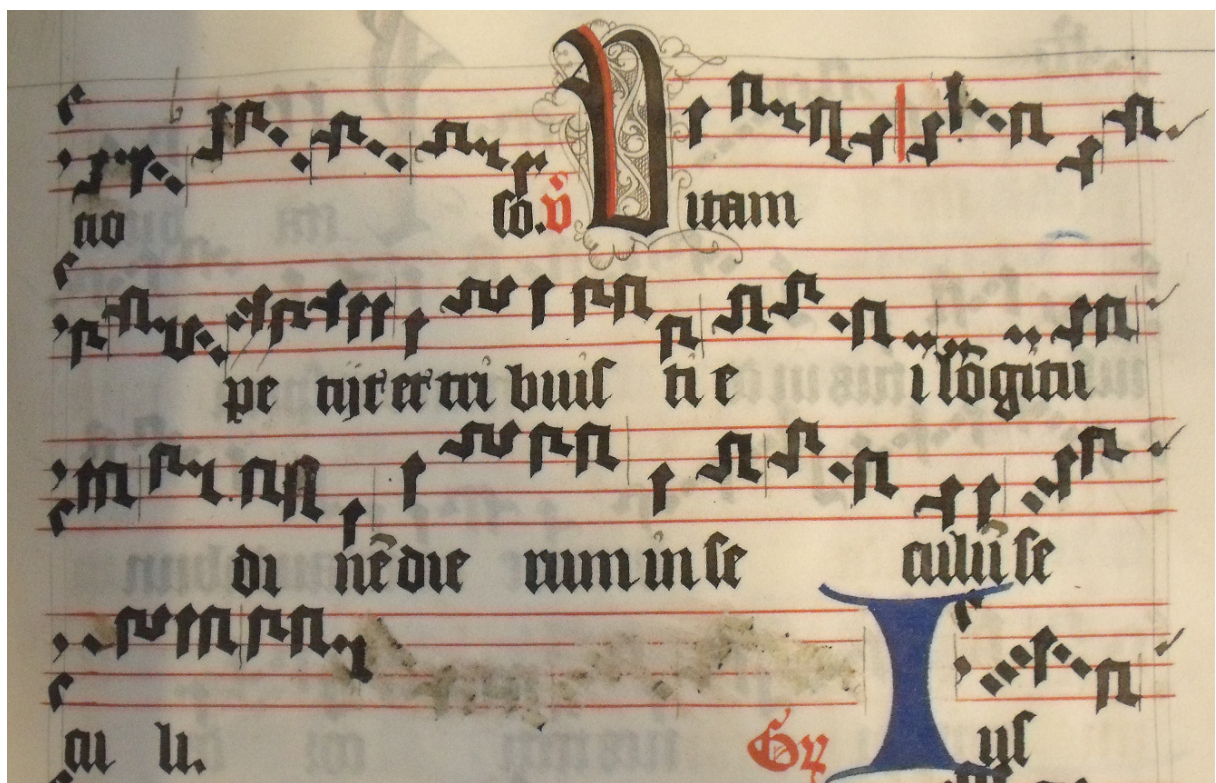 tio so. v̄ Vitam
pe tijt et tri buis ti e i lōgitu
di nē die rum in se culū se
cu li. Gr Ius